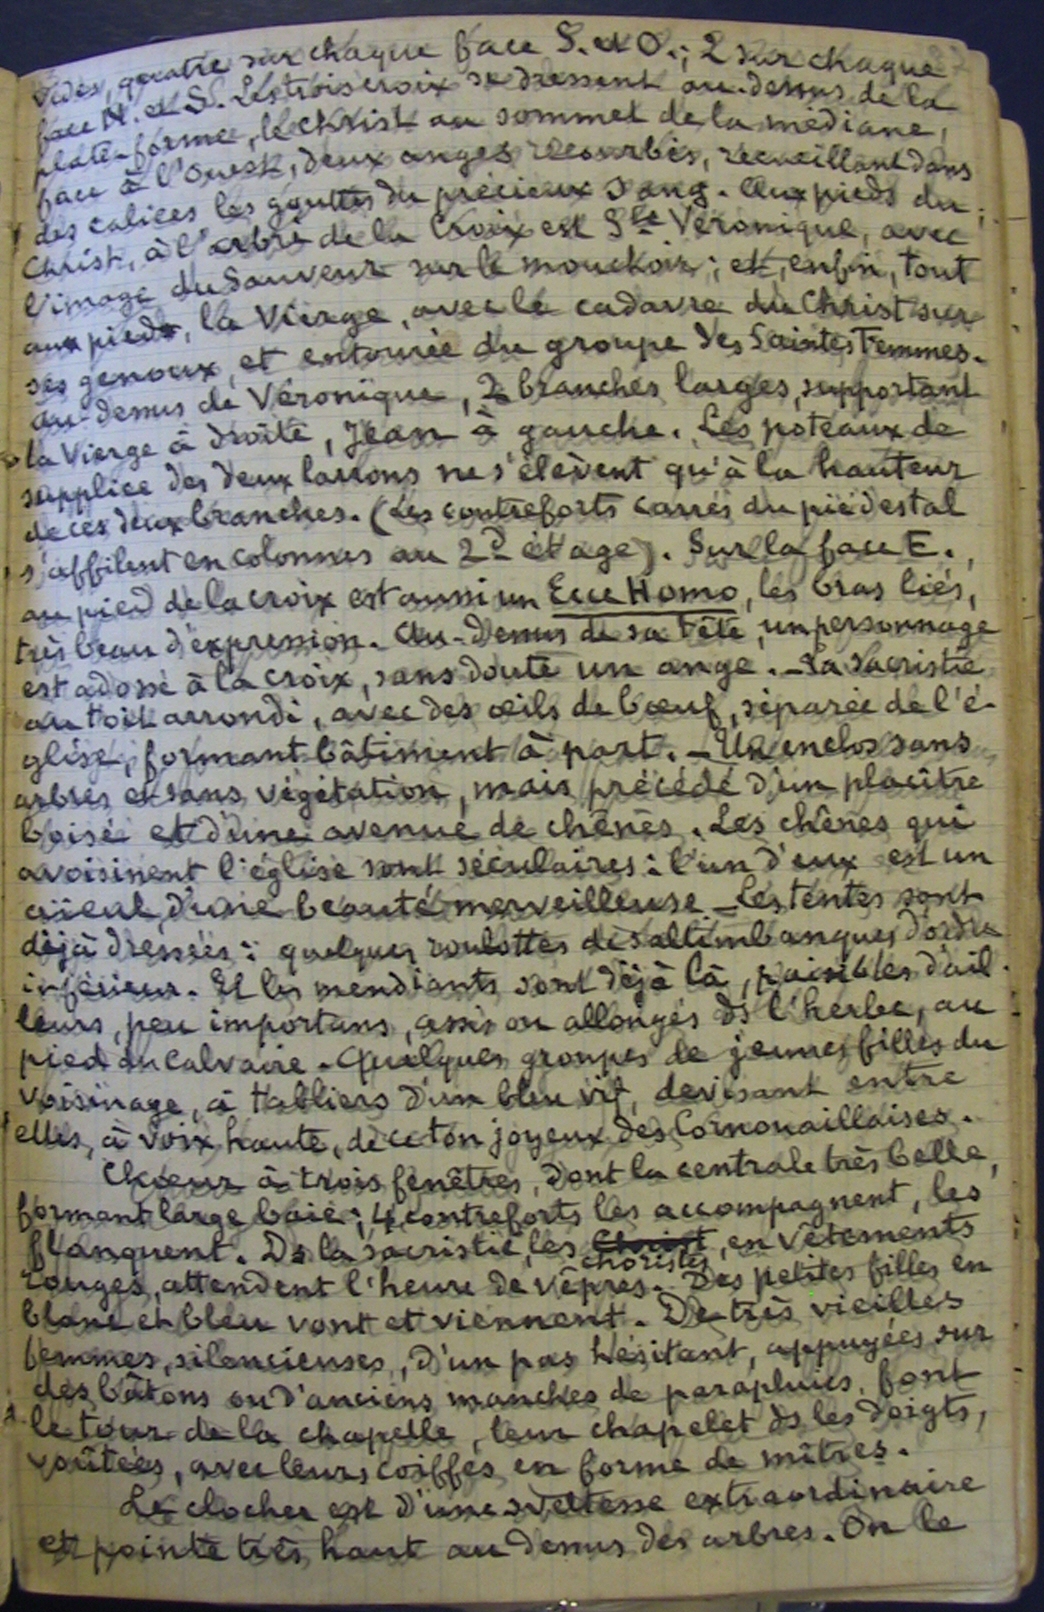 vides, quatre sur chaque face S. et O.; 2 sur chaque
face N. et S. Les trois croix se dressent au-dessus de la
plate-forme, le Christ au sommet de la médiane,
face à l'Ouest, deux anges recourbés, recueillant dans
des calices les gouttes du précieux Sang. Aux pieds du
Christ, à l'arbre de la Croix est Ste Véronique, avec
l'image du Sauveur sur le mouchoir; et, enfin, tout
aux pieds, la Vierge, avec le cadavre du Christ sur
ses genoux, et entourée du groupe des Saintes Femmes.
au-dessus de Véronique, 2 branches larges, supportant
la Vierge à droite, Jean à gauche. Les poteaux de
supplice des deux larrons ne s'élèvent qu'à la hauteur
de ces deux branches. (Les contreforts carrés du piédestal
s'affilent en colonnes au 2d étage). Sur la face E.,
au pied de la croix est aussi un Ecce Homo, les bras liés,
très beau d'expression. Au-dessus de sa tête, un personnage
est adossé à la croix, sans doute un ange. - La sacristie
au toit arrondi, avec des œils de bœuf, séparée de l'é-
glise, formant bâtiment à part. - Un enclos sans
arbres et sans végétation, mais précédé d'un placître
boisé et d'une avenue de chênes. Les chênes qui
avoisinent l'église sont séculaires: l'un d'eux est un
aïeul d'une beauté merveilleuse - Les tentes sont
déjà dressées: quelques roulottes de saltimbanques d'ordre
inférieur. Et les mendiants sont déjà là, paisibles d'ail-
leurs, peu importuns, assis ou allongés ds l'herbe, au
pied du calvaire. Quelques groupes de jeunes filles du
voisinage, à tabliers d'un bleu vif, devisant entre
elles, à voix haute, de ce ton joyeux des Cornouaillaises.
Chœur à trois fenêtres, dont la centrale très belle,
forment large baie; 4 contreforts les accompagnent, les
flanquent. Ds la sacristie, les choristes, en vêtements
rouges, attendent l'heure de vêpres. Des petites filles en
blanc et bleu vont et viennent. De très vieilles
femmes, silencieuses, d'un pas hésitant, appuyées sur
des bâtons ou d'anciens manches de parapluies, font
le tour de la chapelle, leur chapelet ds les doigts,
voûtées, avec leurs coiffes en forme de mîtres.
Le clocher est d'une sveltesse extraordinaire
et pointe très haut au dessus des arbres. On le